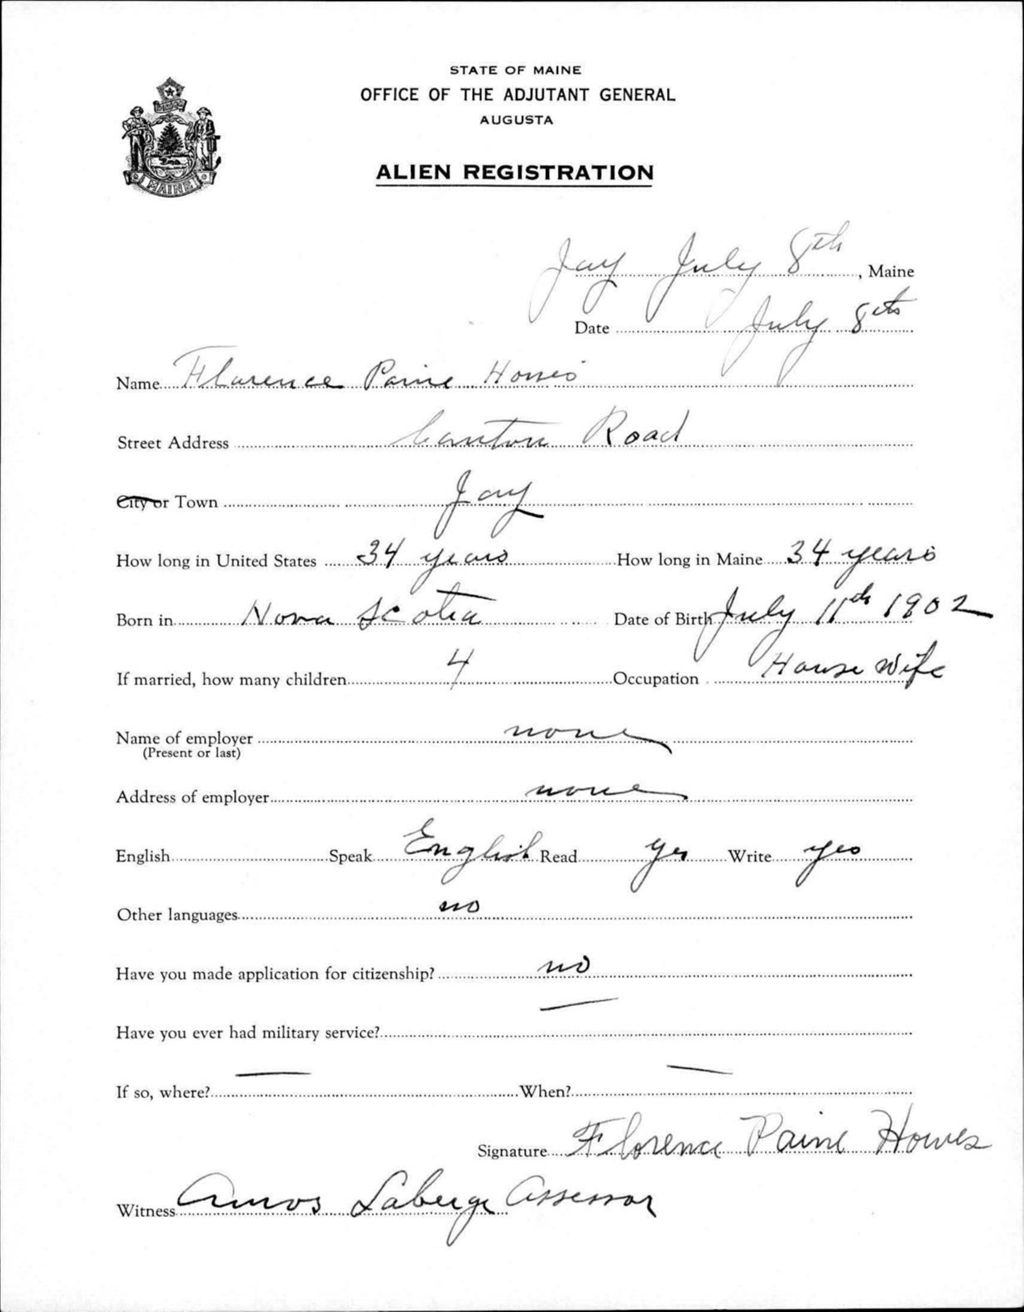 STATE OF MAINE
OFFICE OF THE ADJUTANT GENERAL
AUGUSTA
ALIEN REGISTRATION
MAINE
Jay July 8th, Maine
Date July 8th
Name Florence Paine Howes
Street Address Canton Road
City or Town Jay
How long in United States 34 years How long in Maine 34 years
Born in Nova Scotia Date of Birth July 11th 1902
If married, how many children 4 Occupation House Wife
Name of employer none
(Present or last)
Address of employer none
English Speak English Read yes Write yes
Other languages no
Have you made application for citizenship? no
Have you ever had military service? —
If so, where? — When? —
Signature Florence Paine Howes
Witness Amos Laberge Assessor